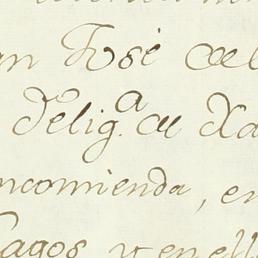 n José del
Delig.ª de Xa
ncomienda, en
Pagos y en ell